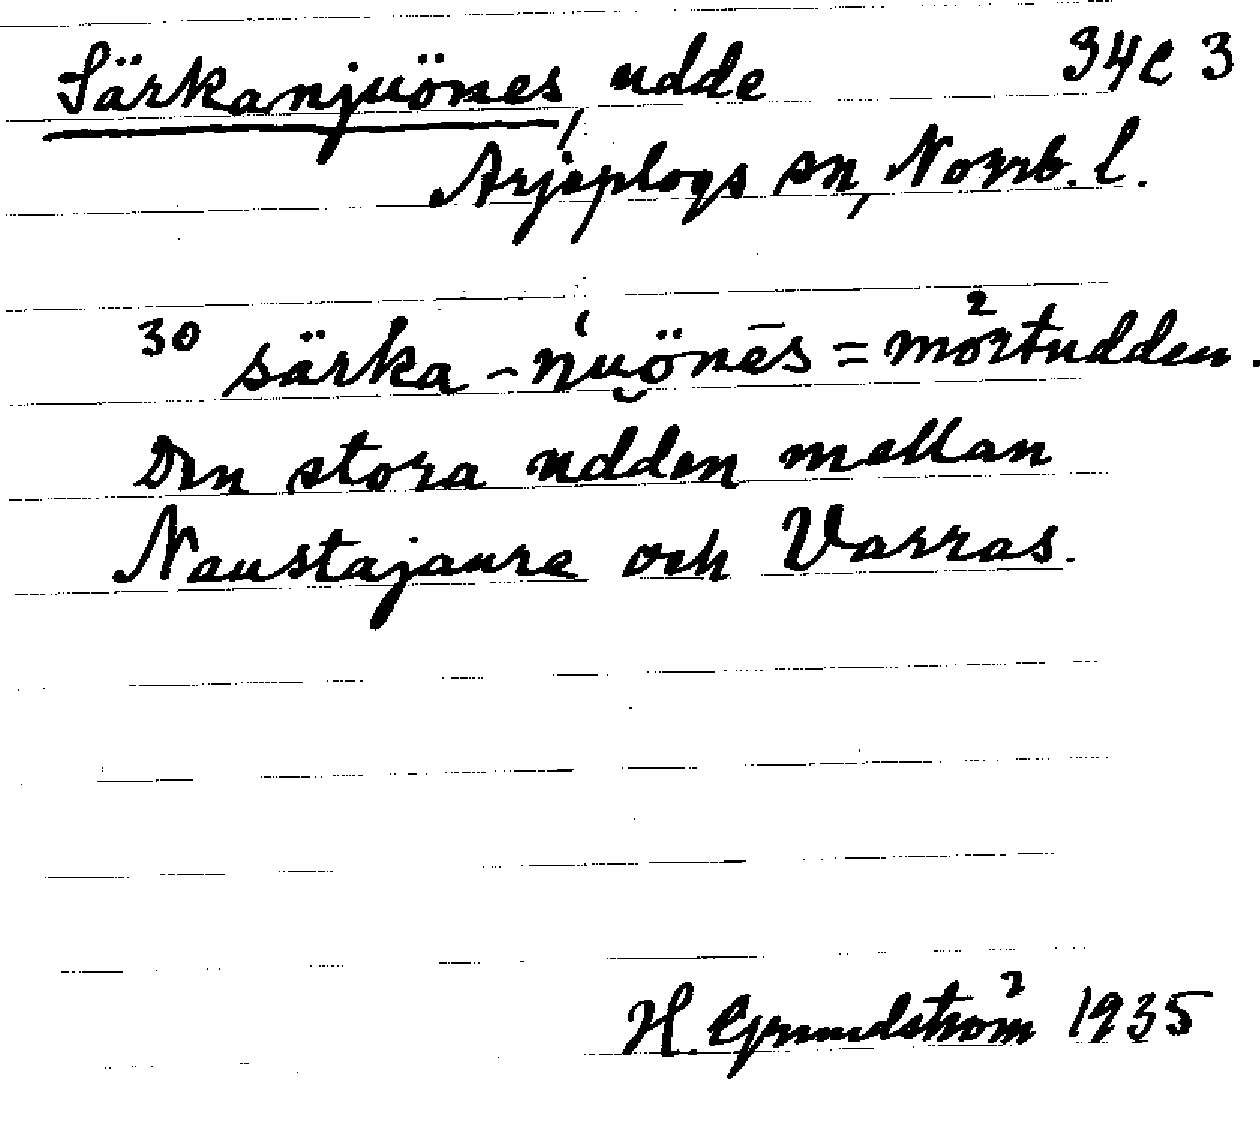 Särkanjuönes, udde 34c 3
Arjeplogs sn, Norrb. l.
30 särka-ńu̯önēs = mörtudden.
Den stora udden mellan
Naustajaure och Varras.
H. Grundström 1935